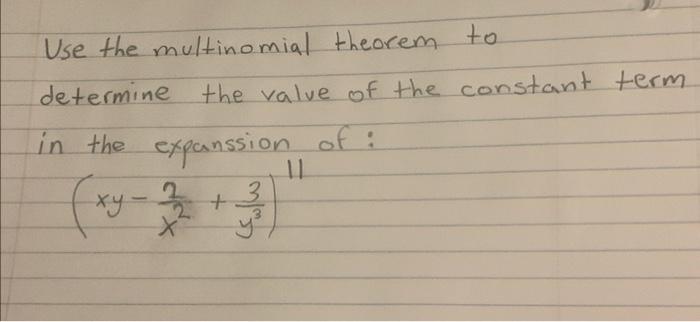 Use the multinomial theorem to
determine the value of the constant term
in the expanssion of :
(xy - 2/x² + 3/y³)¹¹